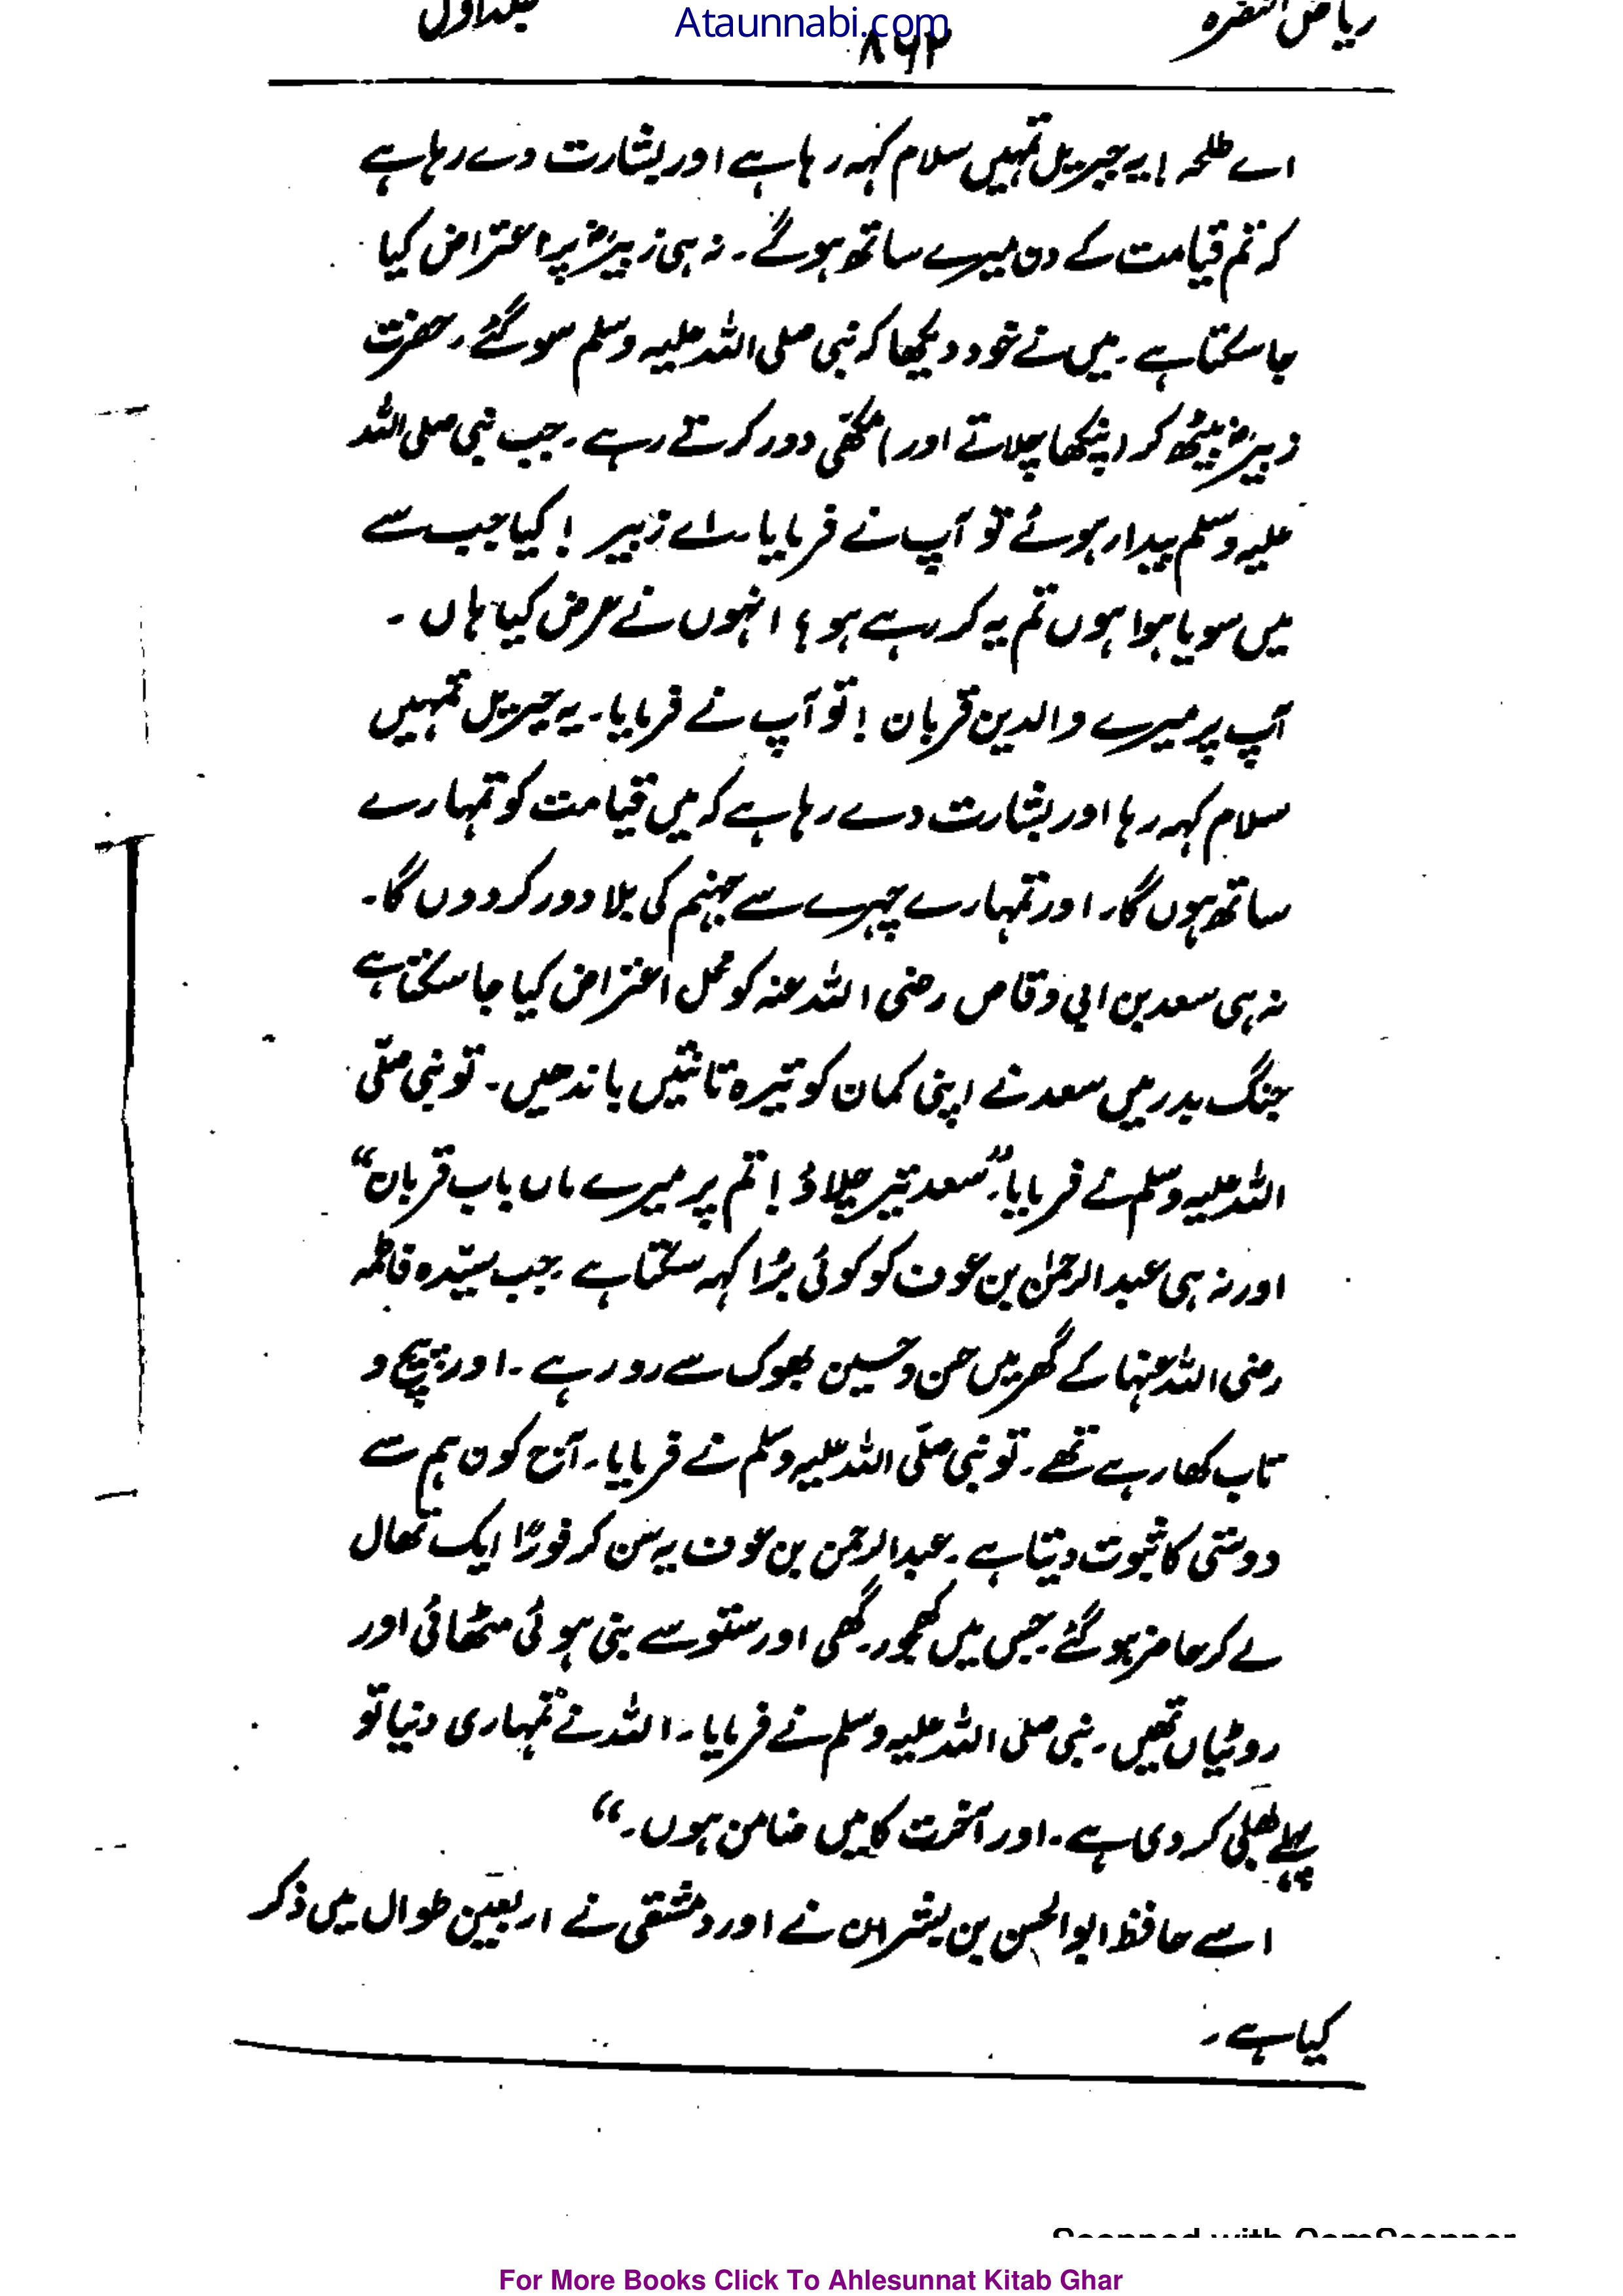 ریاض النضرہ
Ataunnabi.com
جلد اول
۸۶۲
اے طلحہ! یہ جبریل تمہیں سلام کہہ رہا ہے اور بشارت دے رہا ہے
کہ تم قیامت کے دن میرے ساتھ ہو گے۔ نہ ہی زبیرؓ پر اعتراض کیا
جا سکتا ہے۔ میں نے خود دیکھا کہ نبی صلی اللہ علیہ وسلم سو گئے۔ حضرت
زبیرؓ بیٹھ کر (پنکھا چلاتے اور) مکھی دور کرتے رہے۔ جب نبی صلی اللہ
علیہ وسلم بیدار ہوئے تو آپ نے فرمایا۔ اے زبیر! کیا جب سے
میں سویا ہوا ہوں تم یہ کر رہے ہو؟ انہوں نے عرض کیا ہاں۔
آپ پر میرے والدین قربان! تو آپ نے فرمایا۔ یہ جبریل تمہیں
سلام کہہ رہا اور بشارت دے رہا ہے کہ میں قیامت کو تمہارے
ساتھ ہوں گا۔ اور تمہارے چہرے سے جہنم کی بلا دور کر دوں گا۔
نہ ہی سعد بن ابی وقاص رضی اللہ عنہ کو محل اعتراض کیا جا سکتا ہے
جنگ بدر میں سعد نے اپنی کمان کو تیرہ تانتیں باندھیں۔ تو نبی صلّی
اللہ علیہ وسلم نے فرمایا۔ ”سعد تیر چلاؤ! تم پر میرے ماں باپ قربان“
اور نہ ہی عبدالرحمٰن بن عوف کو کوئی بُرا کہہ سکتا ہے۔ جب سیّدہ فاطمہ
رضی اللہ عنہا کے گھر میں حسن و حسین بھوک سے رو رہے۔ اور پیچ و
تاب کھا رہے تھے۔ تو نبی صلّی اللہ علیہ وسلم نے فرمایا۔ آج کون ہم سے
دوستی کا ثبوت دیتا ہے۔ عبدالرحمن بن عوف یہ سن کر فوراً ایک تھال
لے کر حاضر ہو گئے جس میں کھجور۔ گھی اور ستو سے بنی ہوئی مٹھائی اور
روٹیاں تھیں۔ نبی صلی اللہ علیہ وسلم نے فرمایا۔ اللہ نے تمہاری دنیا تو
پہلے بھلی کر دی ہے۔ اور آخرت کا میں ضامن ہوں۔“
اسے حافظ ابوالحسن بن بشران نے اور دمشقی نے اربعین طوال میں ذکر
کیا ہے۔
Scanned with CamScanner
For More Books Click To Ahlesunnat Kitab Ghar